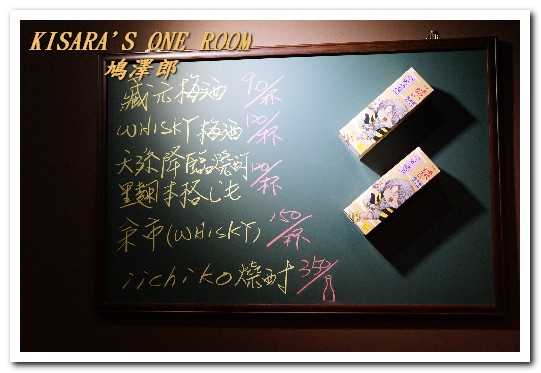 KISARA'S ONE ROOM
鳩澤郎
藏元梅酒 90/杯
WHISKY梅酒 120/杯
天孫降臨燒酎 120/杯
黑麴本格じも
余市(WHISKY) 150/杯
iichiko燒酎 350/